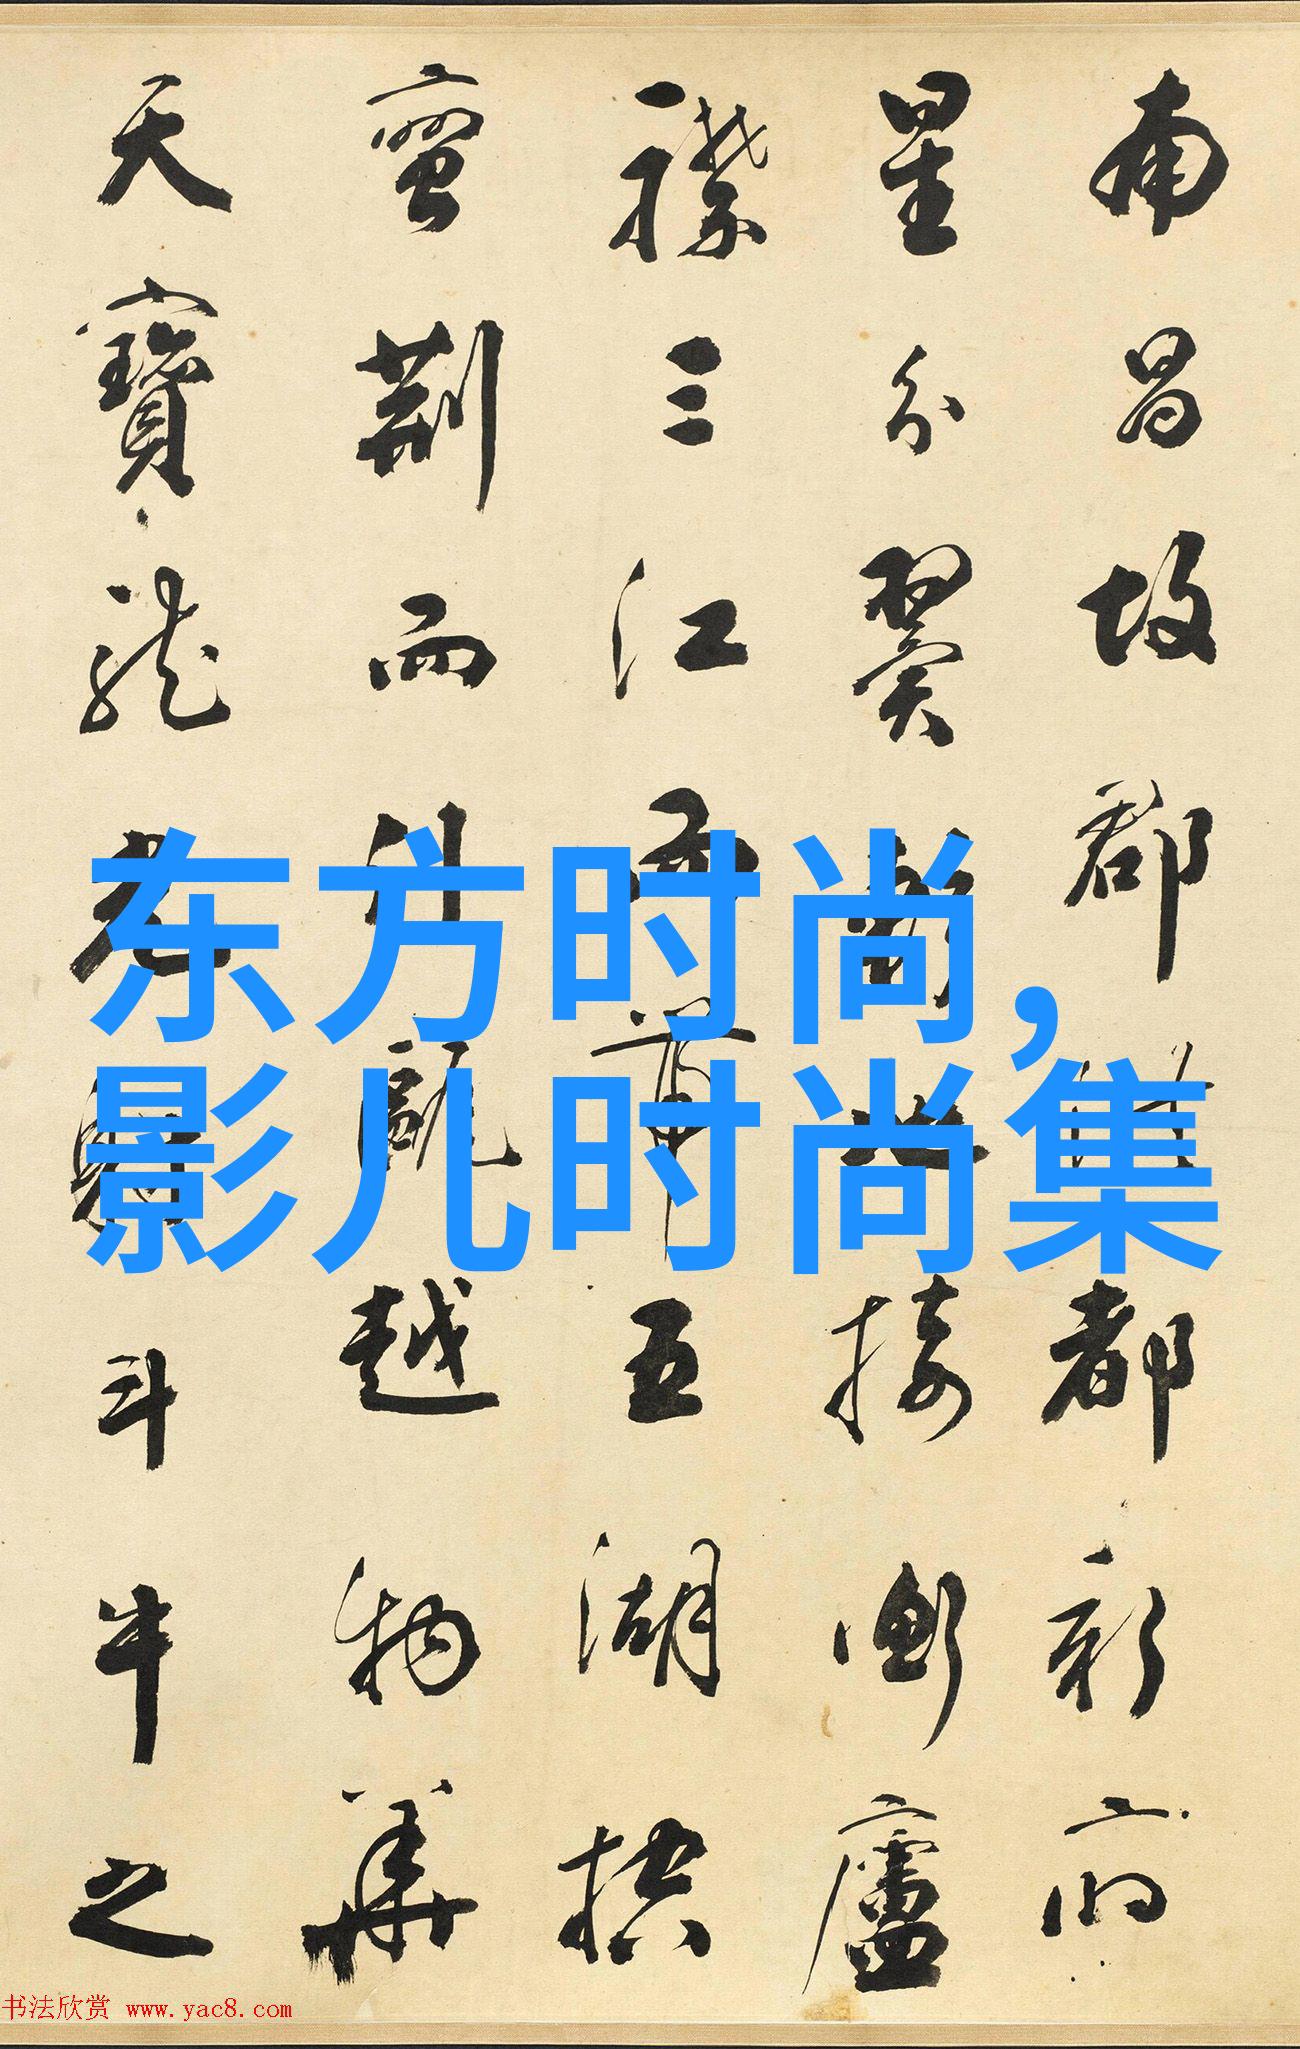 南昌故郡洪都新府
星分翼軫地接衡廬
襟三江而帶五湖控
蠻荊而引甌越物華
天寶龍光射斗牛之
东方时尚,
影儿时尚集
书法欣赏 www.yac8.com